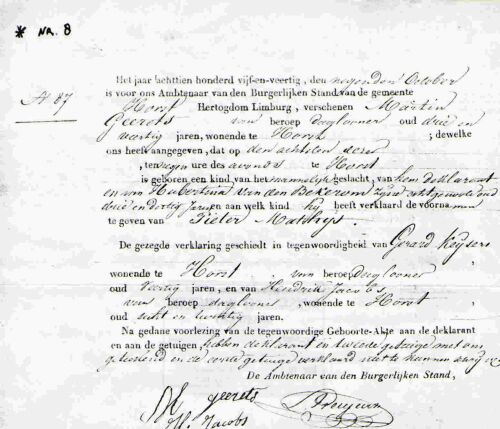 * NR. 8
Het jaar achttien honderd vijf-en-veertig, den negenden October
is voor ons Ambtenaar van den Burgerlijken Stand van de gemeente
N 87
Horst Hertogdom Limburg, verschenen Martin
Geerets van beroep daglooner oud drie en
veertig jaren, wonende te Horst ; dewelke
ons heeft aangegeven, dat op den achtsten dezer
, ten negen ure des avonds te Horst
is geboren een kind van het mannelijk geslacht, van hem deklarant
en van Hubertina van den Bekerom zijne echtgenoote oud
drie en dertig jaren aan welk kind hij heeft verklaard de voorna men
te geven van Pieter Mathijs.
De gezegde verklaring geschiedt in tegenwoordigheid van Gerard Keijsers
wonende te Horst van beroep daglooner
oud veertig jaren, en van Hendrik Jacobs,
van beroep daglooner, wonende te Horst
oud acht en twintig jaren.
Na gedane voorlezing van de tegenwoordige Geboorte-Akte aan de deklarant
en aan de getuigen, hebben deklarant en tweede getuige met ons
geteekend en de eerste getuige verklaard niet te kunnen schrijven
De Ambtenaar van den Burgerlijken Stand,
M geerets
H. Jacobs